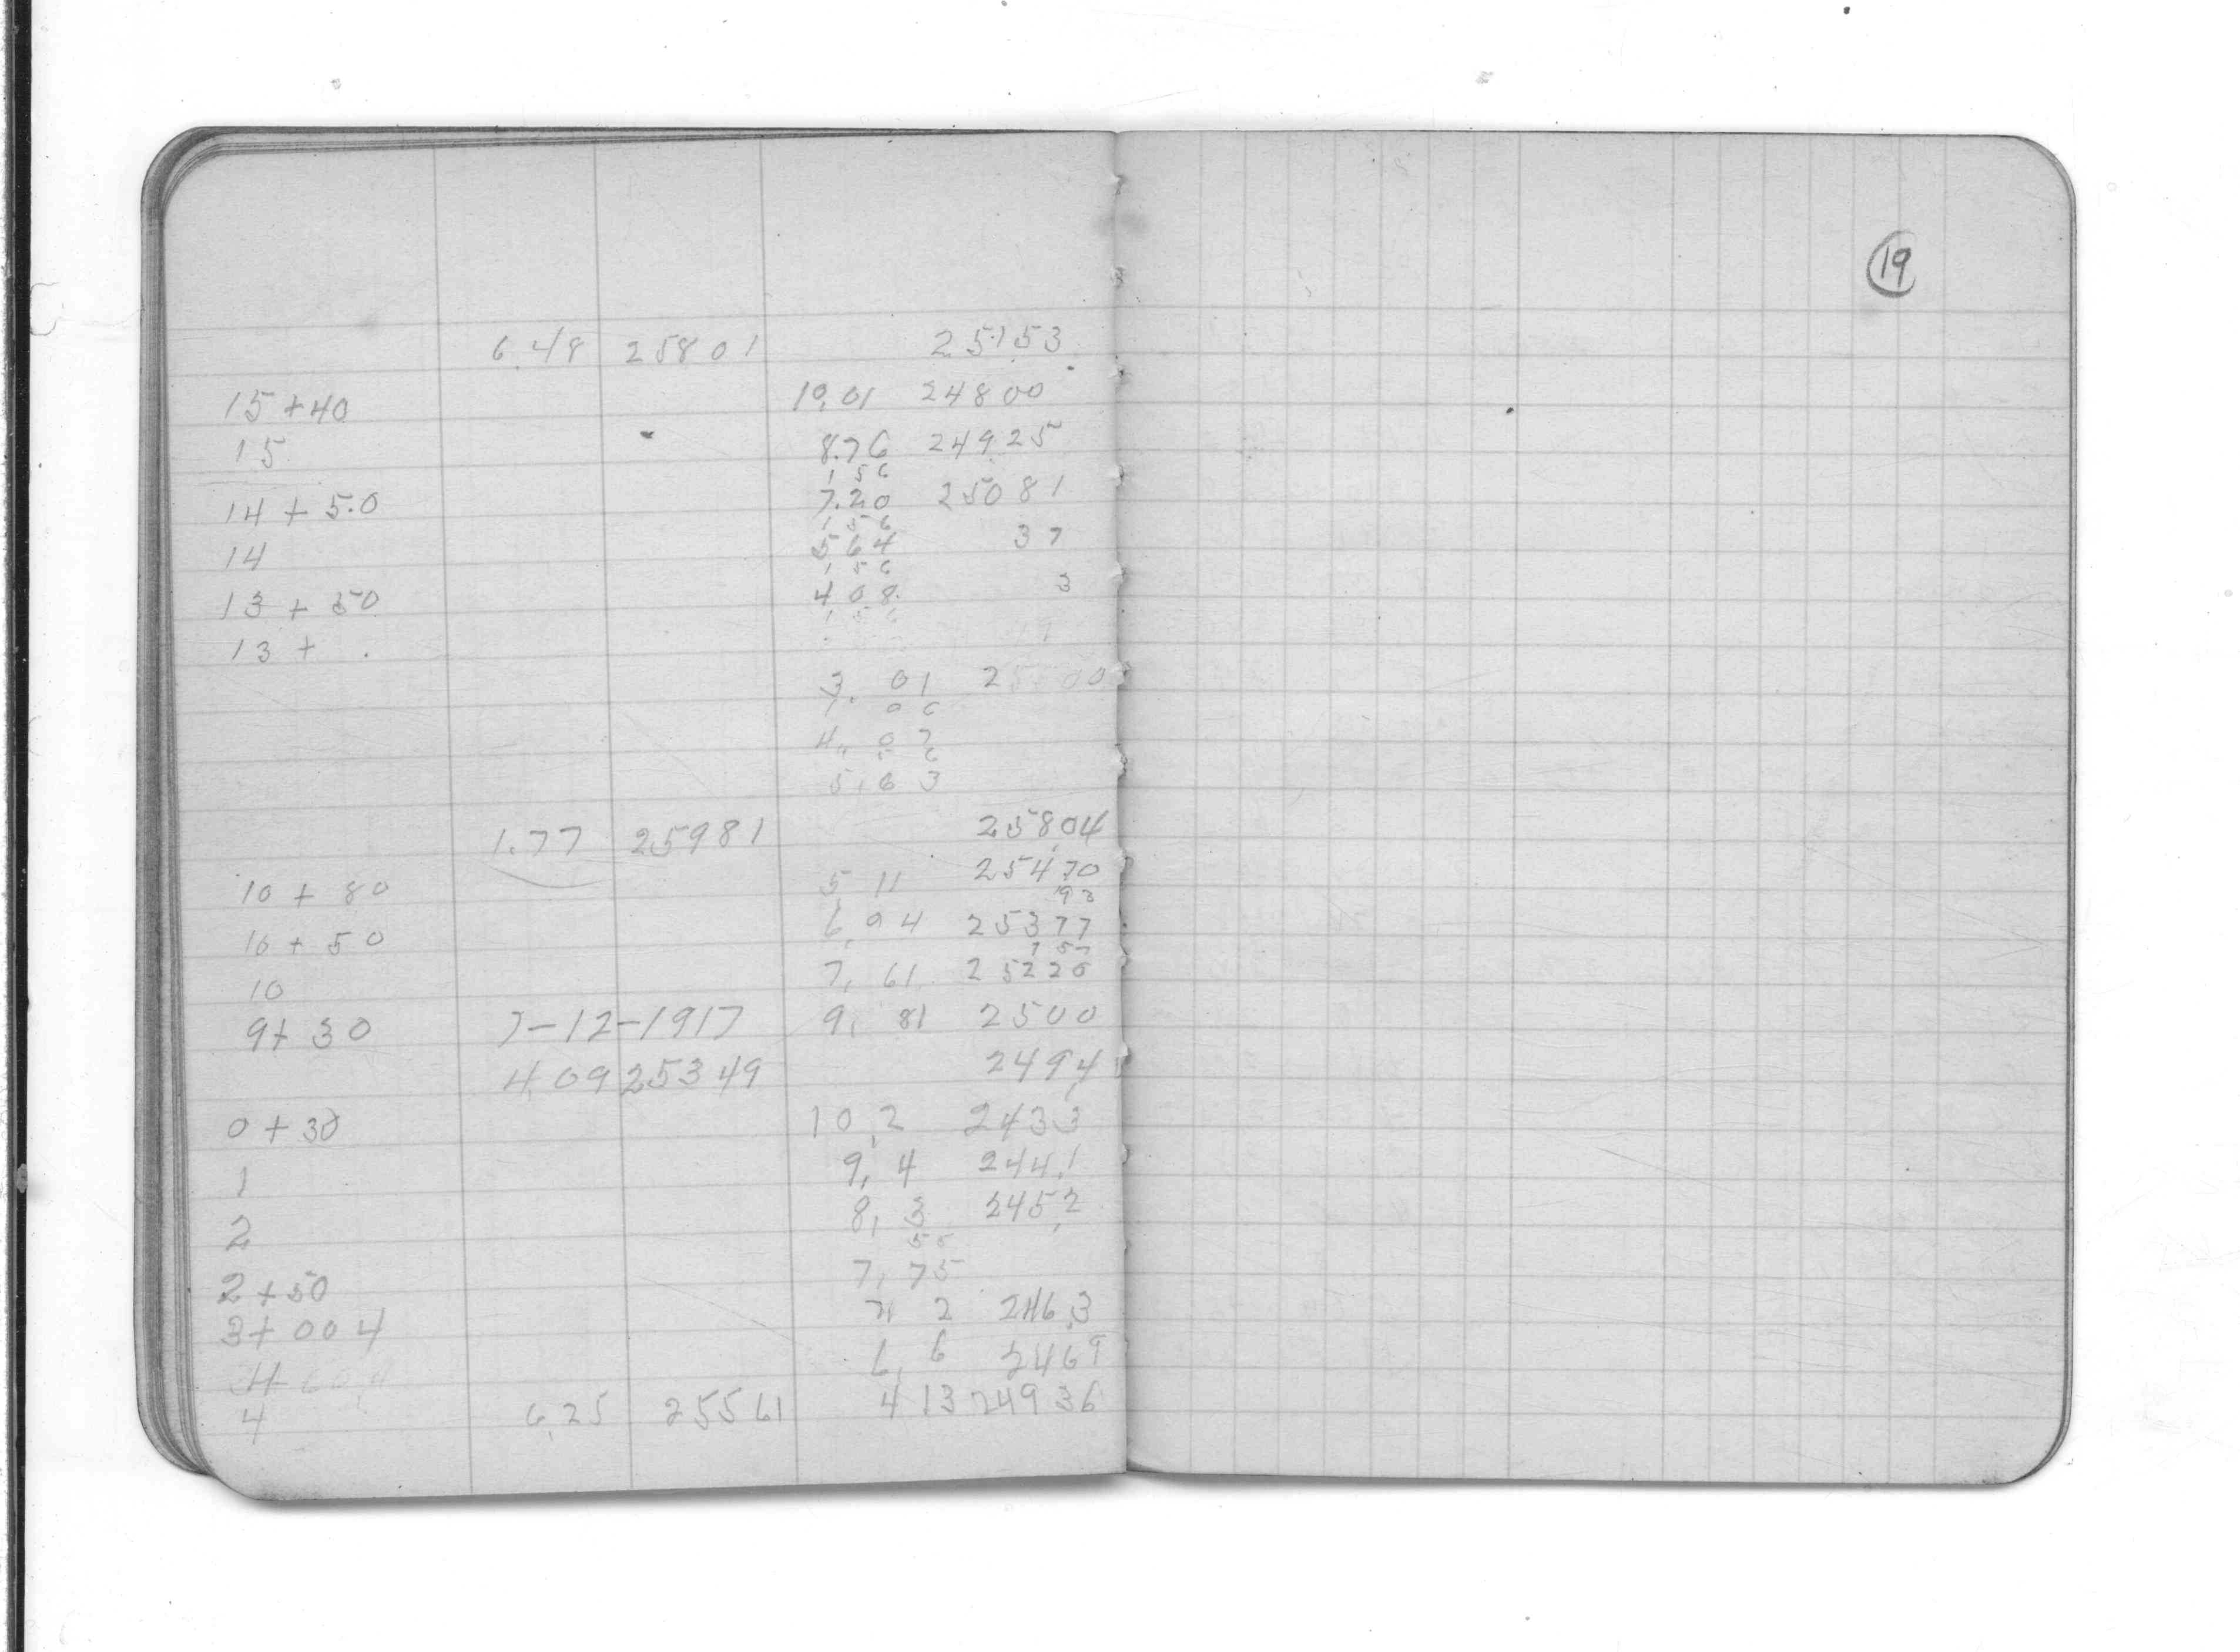 6.48 25801 25153
15+40 10.01 24800
15 8.76 24925
1 56
14+50 7.20 25081
1 56
14 5 64 37
1 56
13+50 4 08 3
1 5 6
13+
3. 01
0 6
4. 07
5 6
5.63
1.77 25981 25804
10+80 5 11 25470
93
10+50 6.04 25377
1 57
10 7.61 25220
9+30 7-12-1917 9.81 2500
4.09 25349 2494
0+30 10.2 2433
1 9.4 244.1
2 8.3 245.2
55
2+50 7.75
3+00 4 7. 2 246.3
6.6 2469
4 6.25 25561 4 13 249 36
19